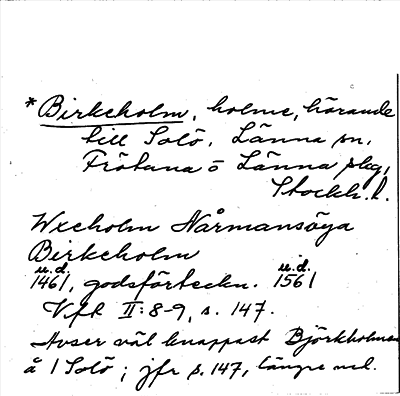 * Birkeholm, holme, hörande
till Solö, Länna sn,
Frötuna o Länna slg,
Stockh. l.
Wxeholm Nårmansöya
Birkeholm
u.d. u.d.
1461, godsförteckn. 1561
Vfk II:8-9, s. 147.
Avser väl knappast Björkholmen
å 1 Solö; jfr s. 147, längre ned.